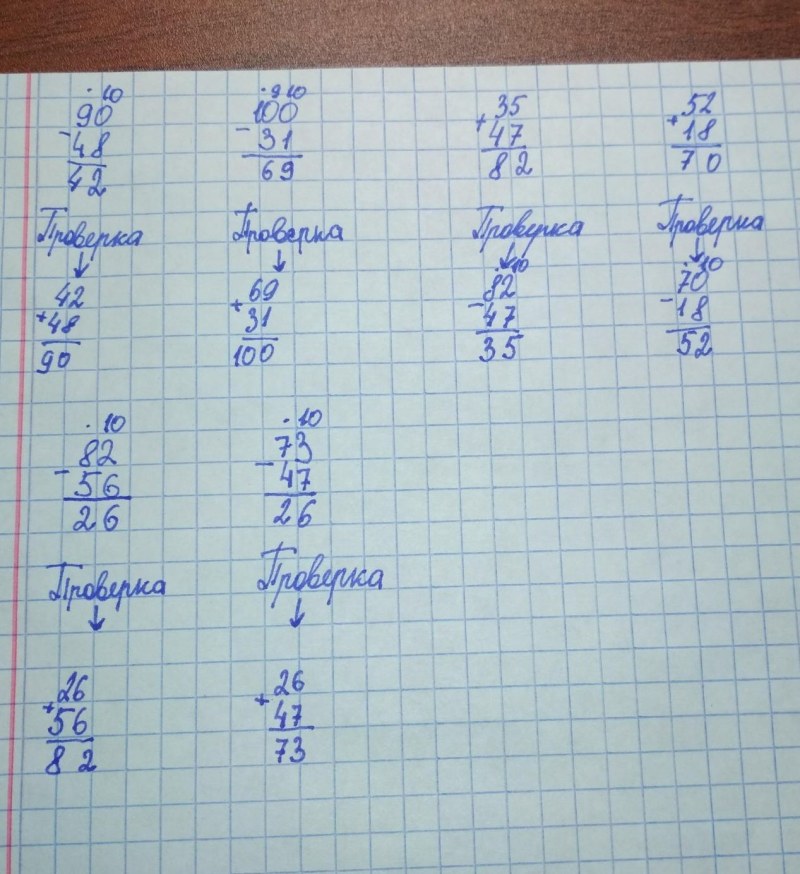 . 10
90
- 48
42
Проверка
↓
42
+ 48
90
. 9 10
100
- 31
69
Проверка
↓
69
+ 31
100
35
+ 47
82
Проверка
↓
. 10
82
- 47
35
52
+ 18
70
Проверка
↓
. 10
70
- 18
52
. 10
82
- 56
26
Проверка
↓
26
+ 56
82
. 10
73
- 47
26
Проверка
↓
26
+ 47
73